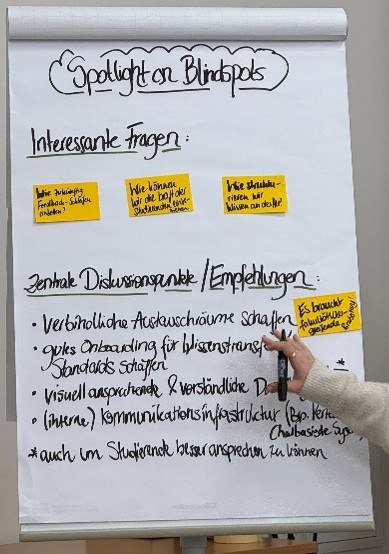 Spotlight on Blindspots
Interessante Fragen:
Wie zukünftig
Feedback-Schleifen
Wie können
wir die
Studierenden
Wie struktu-
rieren wir
Wissen an der
Zentrale Diskussionspunkte / Empfehlungen:
Es braucht
• Verbindliche Austauschräume schaffen
• gutes Onboarding für
Standards schaffen
• visuell ansprechende & verständliche
• (interne) Kommunikationsinfrastruktur (Bsp.
Chatbasierte
*auch um Studierende besser ansprechen zu können